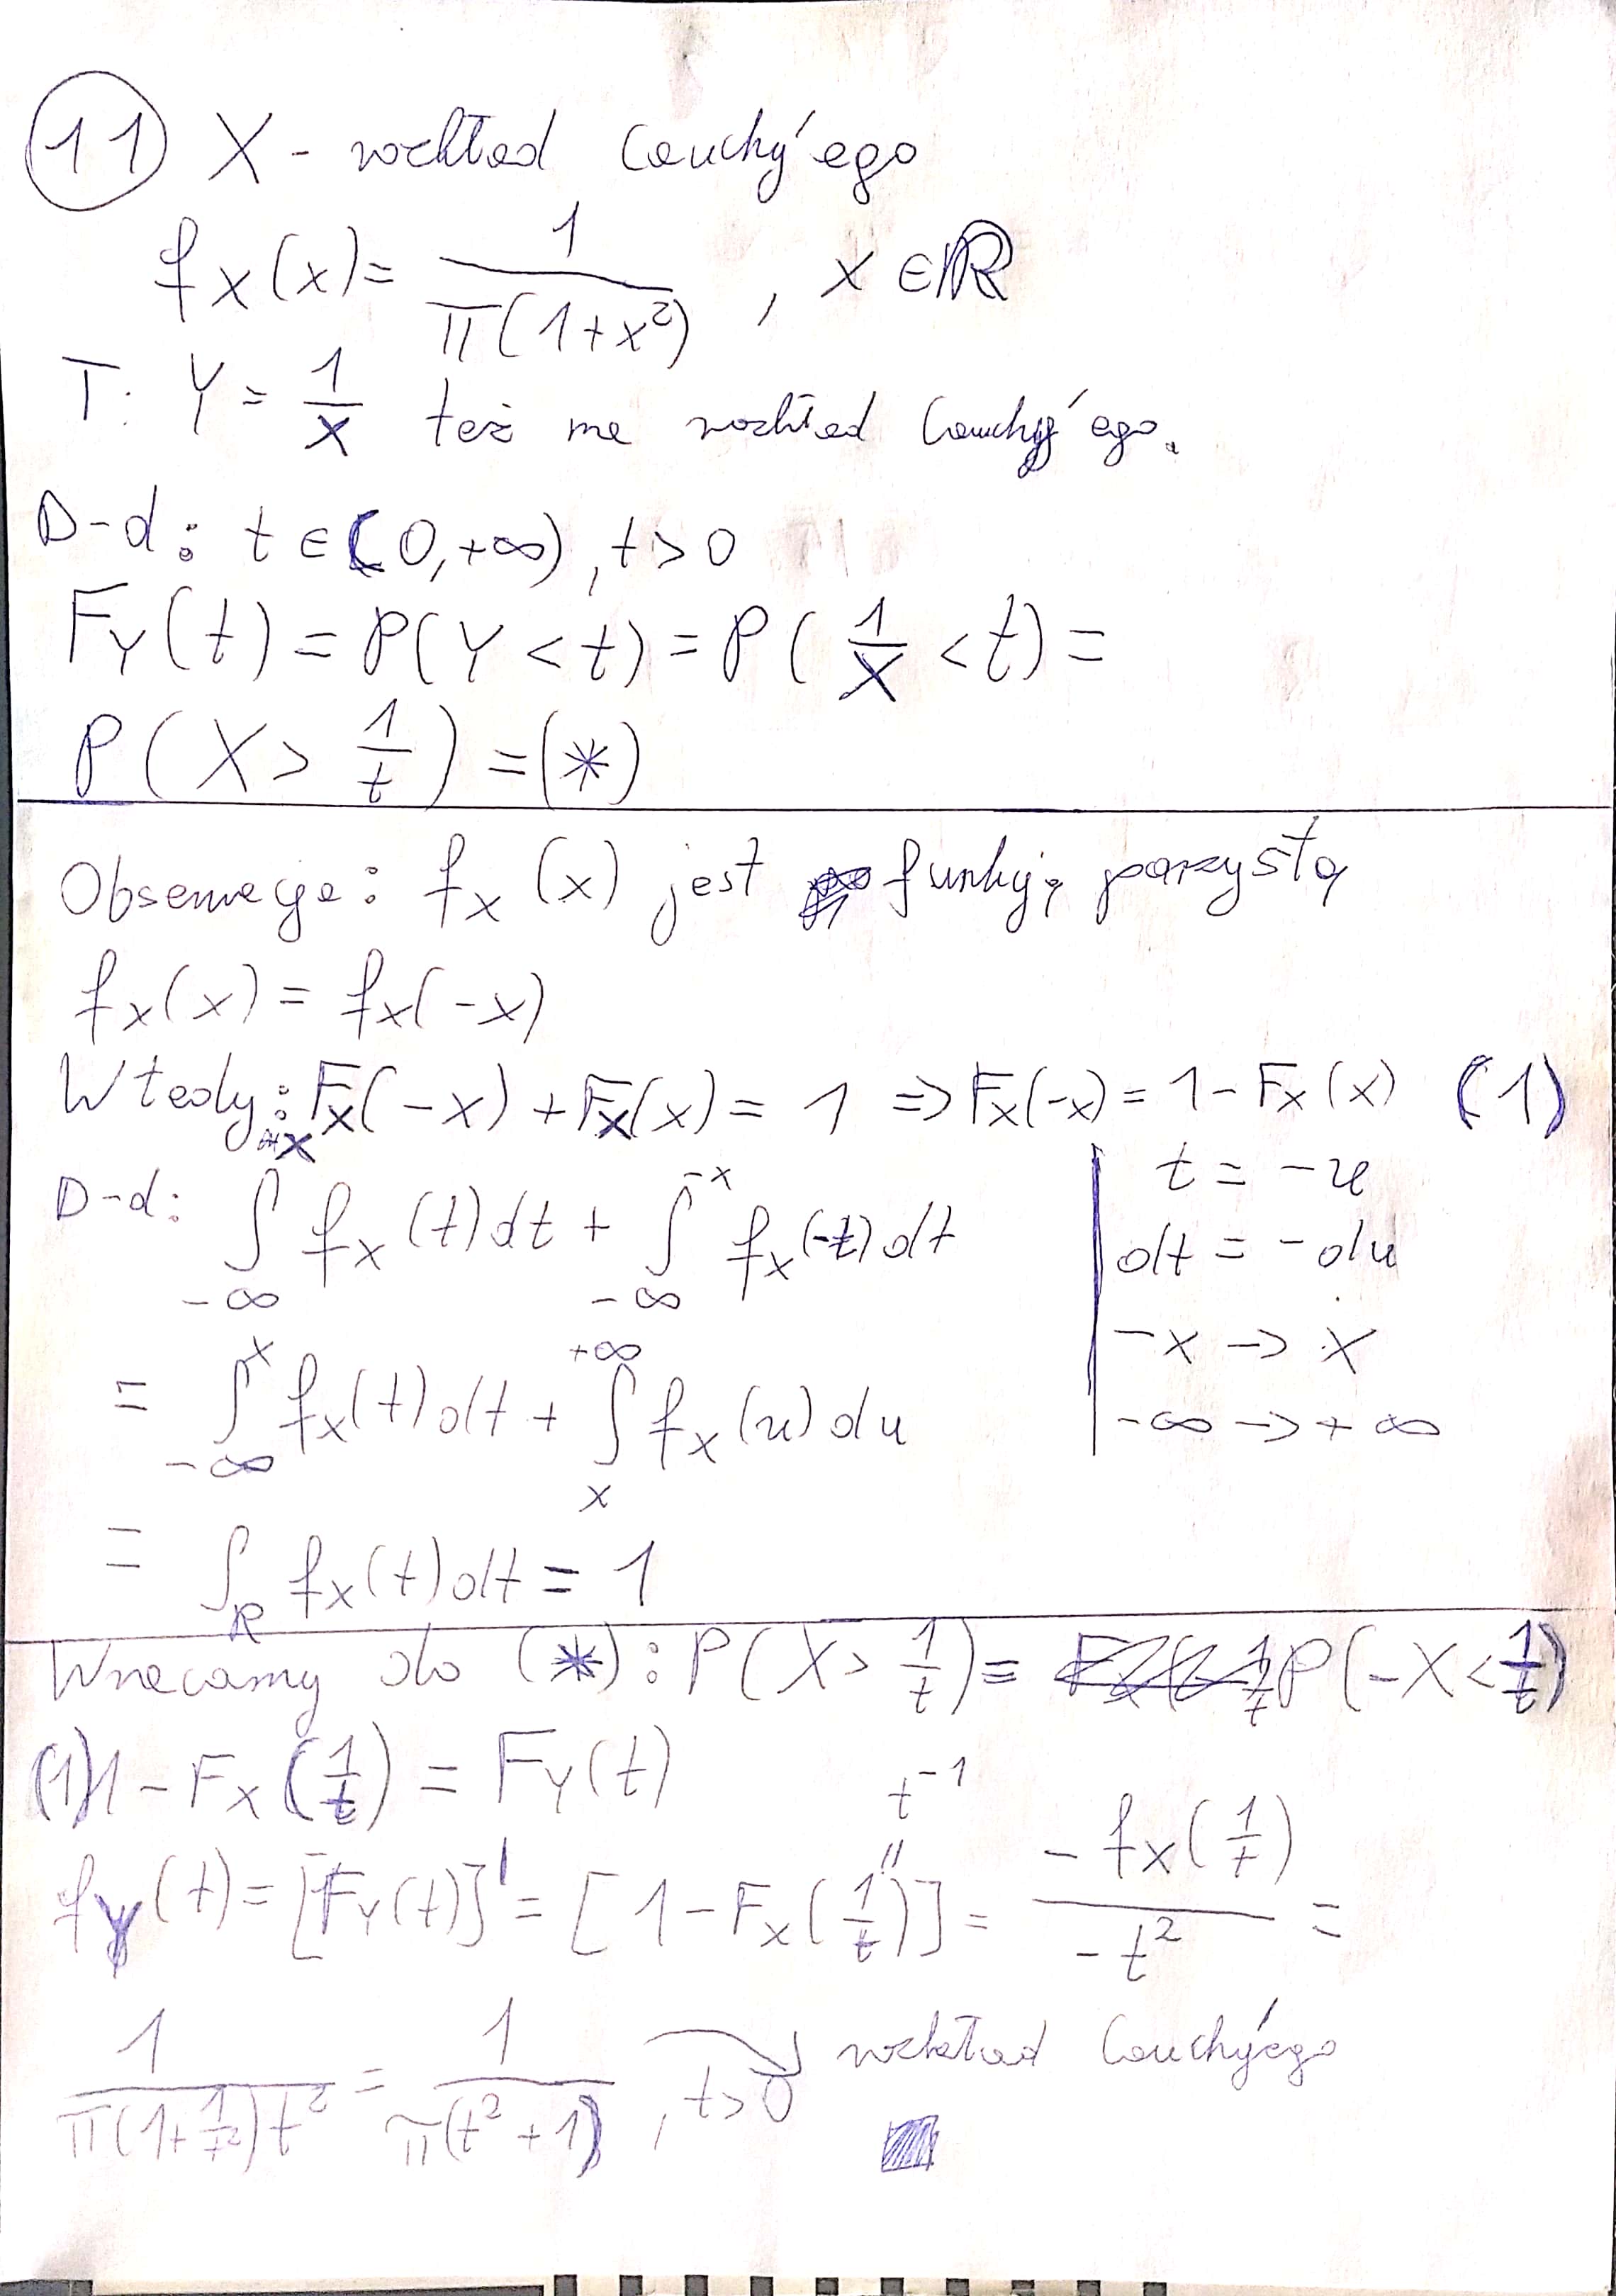 11 X - rozkład Cauchy'ego
f_X(x) = 1/(π(1+x²)) , x ∈ ℝ
T: Y = 1/X też ma rozkład Cauchy'ego.
D-d: t ∈ (0,+∞), t > 0
F_Y(t) = P(Y < t) = P(1/X < t) =
P(X > 1/t) = (*)
Obserwacja: f_X(x) jest funkcją parzystą
f_X(x) = f_X(-x)
Wtedy: F_X(-x) + F_X(x) = 1 => F_X(-x) = 1 - F_X(x) (1)
D-d: ∫_{-∞}^{x} f_X(t)dt + ∫_{-∞}^{-x} f_X(-t)dt | t = -u
dt = -du
-x → x
= ∫_{-∞}^{x} f_X(t)dt + ∫_{x}^{+∞} f_X(u)du | -∞ → +∞
= ∫_R f_X(t)dt = 1
Wracamy do (*): P(X > 1/t) = P(-X < 1/t)
(1) 1 - F_X(1/t) = F_Y(t)
t⁻¹
"
f_Y(t) = [F_Y(t)]' = [1 - F_X(1/t)] = -f_X(1/t)/-t² =
1/(π(1+1/t²)t²) = 1/(π(t²+1)) , t > 0 rozkład Cauchy'ego